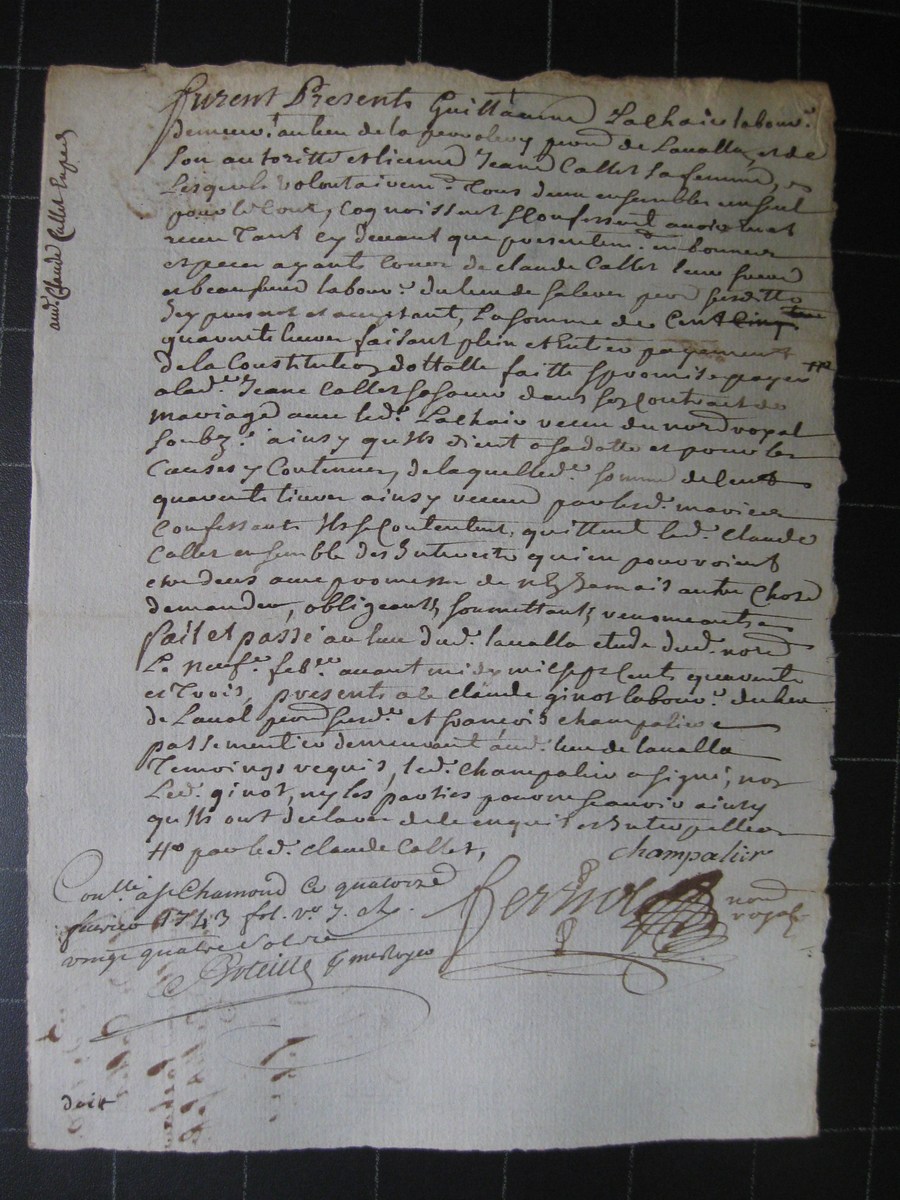 furent Presents Guillaume Lachair labour.r
demeur.t au lieu de la paroisse de Lavalla, et de
son autoritté et licence Jeanne Callet sa femme,
Lesquels volontairem.t tous deux ensembles un seul
pour le tout, cognoissent & confessent avoir
receu tant cy devant que presentem.t en bonnes
especes ayants cours de claude Callet leur frere
et beaufrere labour.r du lieu de paroisse susditte
icy present et acceptant, La somme de Cent
quarente livres faisant plein et entier payement
de la Constitution dottalle faitte & promise payer
a lad.e Jeanne Callet sa soeur dans son Contrat de
mariage avec led. Lachair receu du no.re royal
soubz.é ainsy qu'ils dient a sa dotte et pour les
Causes y Contenues, de laquelled.e somme de Cent
quarente livres ainsy receue par lesd. mariés
Confessants ils se Contentent, quittent led. Claude
Callet ensemble des Interests qu'en pourroient
estre deus avec promesse de n'en jamais autre Chose
demander, obligeants, soumettants, renonceants
fait et passé au lieu dud. lavalla etude dud. no.re
Le neuf.e feb.er avant midy mil sept Cents quarente
et Trois, presents a ce claude ginot labour.r du lieu
de Laval paroisse susd.e et françois champalier
passementier demeurant aud. lieu de lavalla
Temoings requis, led. Champalier a signé, non
Led. ginot, ny les parties pour ne scavoir ainsy
qu'ils ont declaré de ce enquis et interpellés
# par led. claude Callet,
champalier
Con.llé a S.t Chamond Ce quatorze
fevrier 1743 fol. v.o 7.
vingt quatre sols
no.re royal
aud. Claude Callet
doit